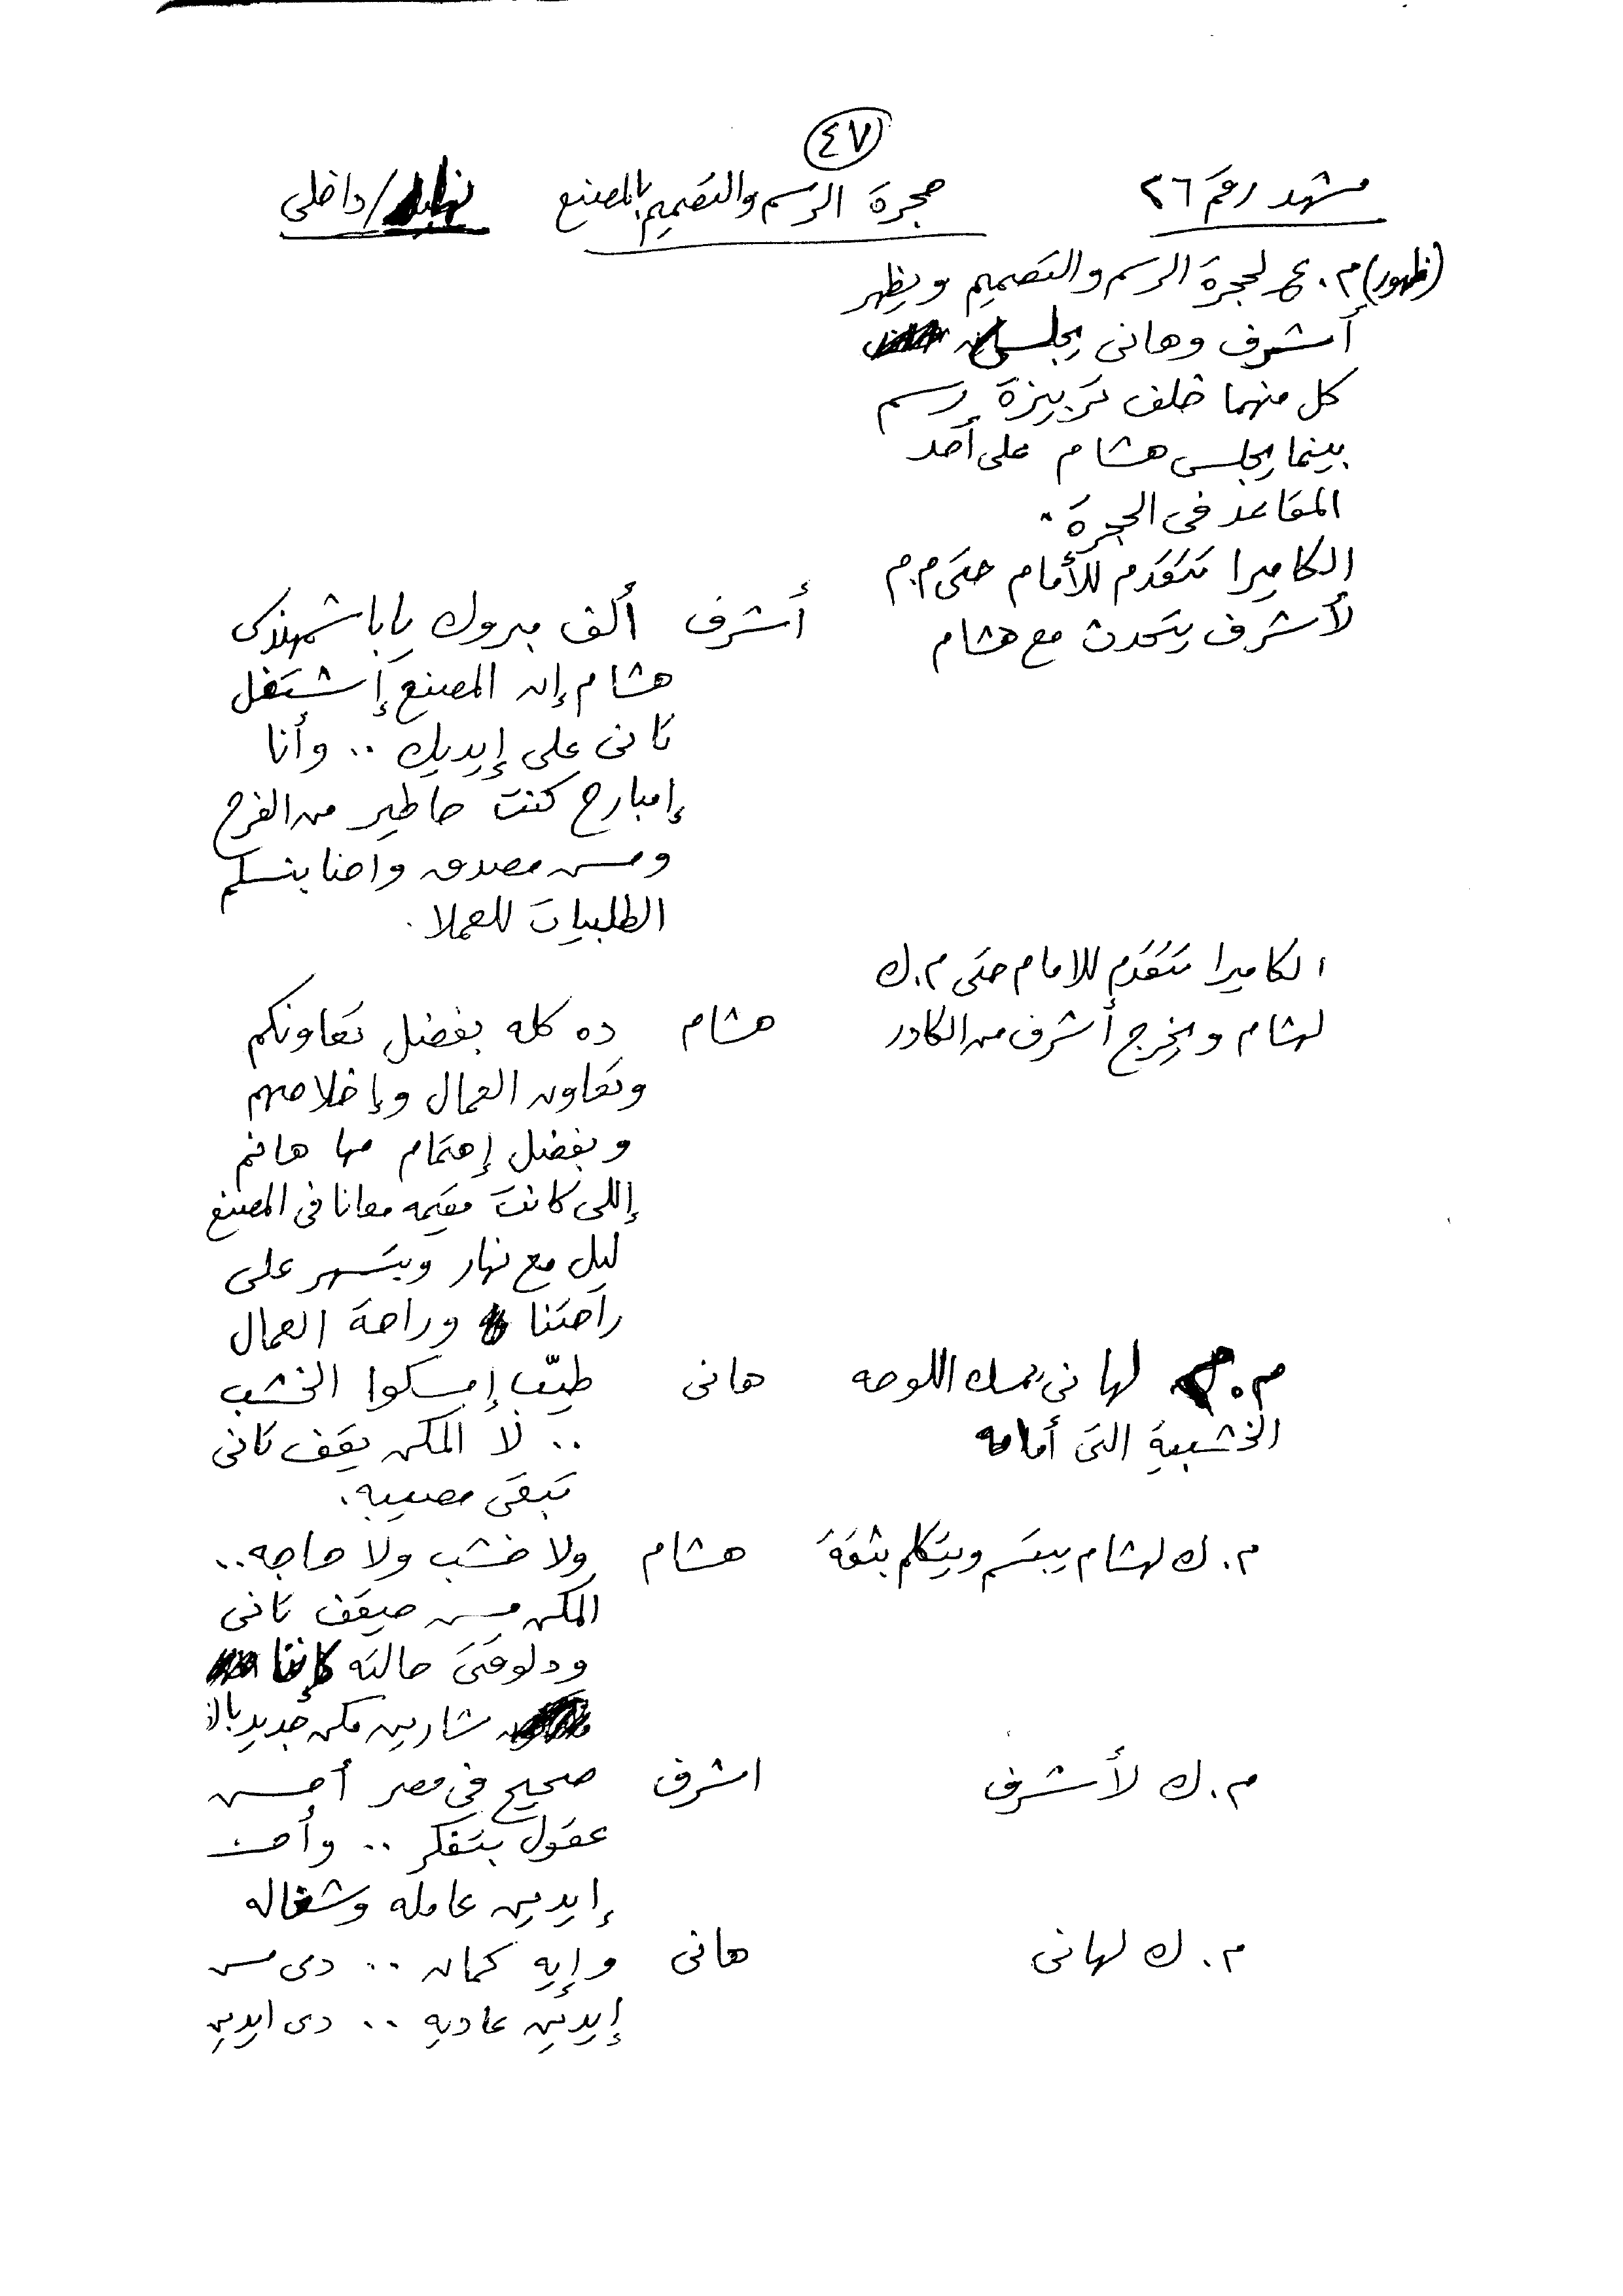 ٤٧
مشهد رقم ٢٦ حجرة الرسم والتصميم بالمصنع نهار/داخلى
(ظهور) م.ع لحجرة الرسم والتصميم ويظهر
أشرف وهانى يجلس
كل منهما خلف تربيزة رسم
بينما يجلس هشام على أحد
المقاعد فى الحجرة.
الكاميرا تتقدم للأمام حتى م.م
لأشرف يتحدث مع هشام
أشرف ألف مبروك ياباشمهندس
هشام إن المصنع إشتغل
تانى على إيديك .. وأنا
إمبارح كنت حاطير من الفرح
ومش مصدق واحنا بنسلم
الطلبيات للعملا.
الكاميرا تتقدم للامام حتى م.ك
لهشام ويخرج أشرف من الكادر
هشام ده كله بفضل تعاونكم
وتعاون العمال وإخلاصهم
وبفضل إهتمام مها هانم
إللى كانت مقيمه معانا فى المصنع
ليل مع نهار وبتسهر على
راحتنا وراحة العمال
م. لهانى يمسك اللوحه
الخشبية التى أمامه
هانى طيّب إمسكوا الخشب
.. لا المكن يقف تانى
تبقى مصيبه.
م.ك لهشام يبتسم ويتكلم بثقة
هشام ولا خشب ولا حاجه..
المكن مش حيقف تانى
ودلوقتى حالته كإننا
شارين مكن جديد
م.ك لأشرف
اشرف صحيح فى مصر أحسن
عقول بتفكر .. وأحسن
إيدين عامله وشغاله
م.ك لهانى
هانى وإيه كمان .. دى مش
إيدين عاديه .. دى ايدين